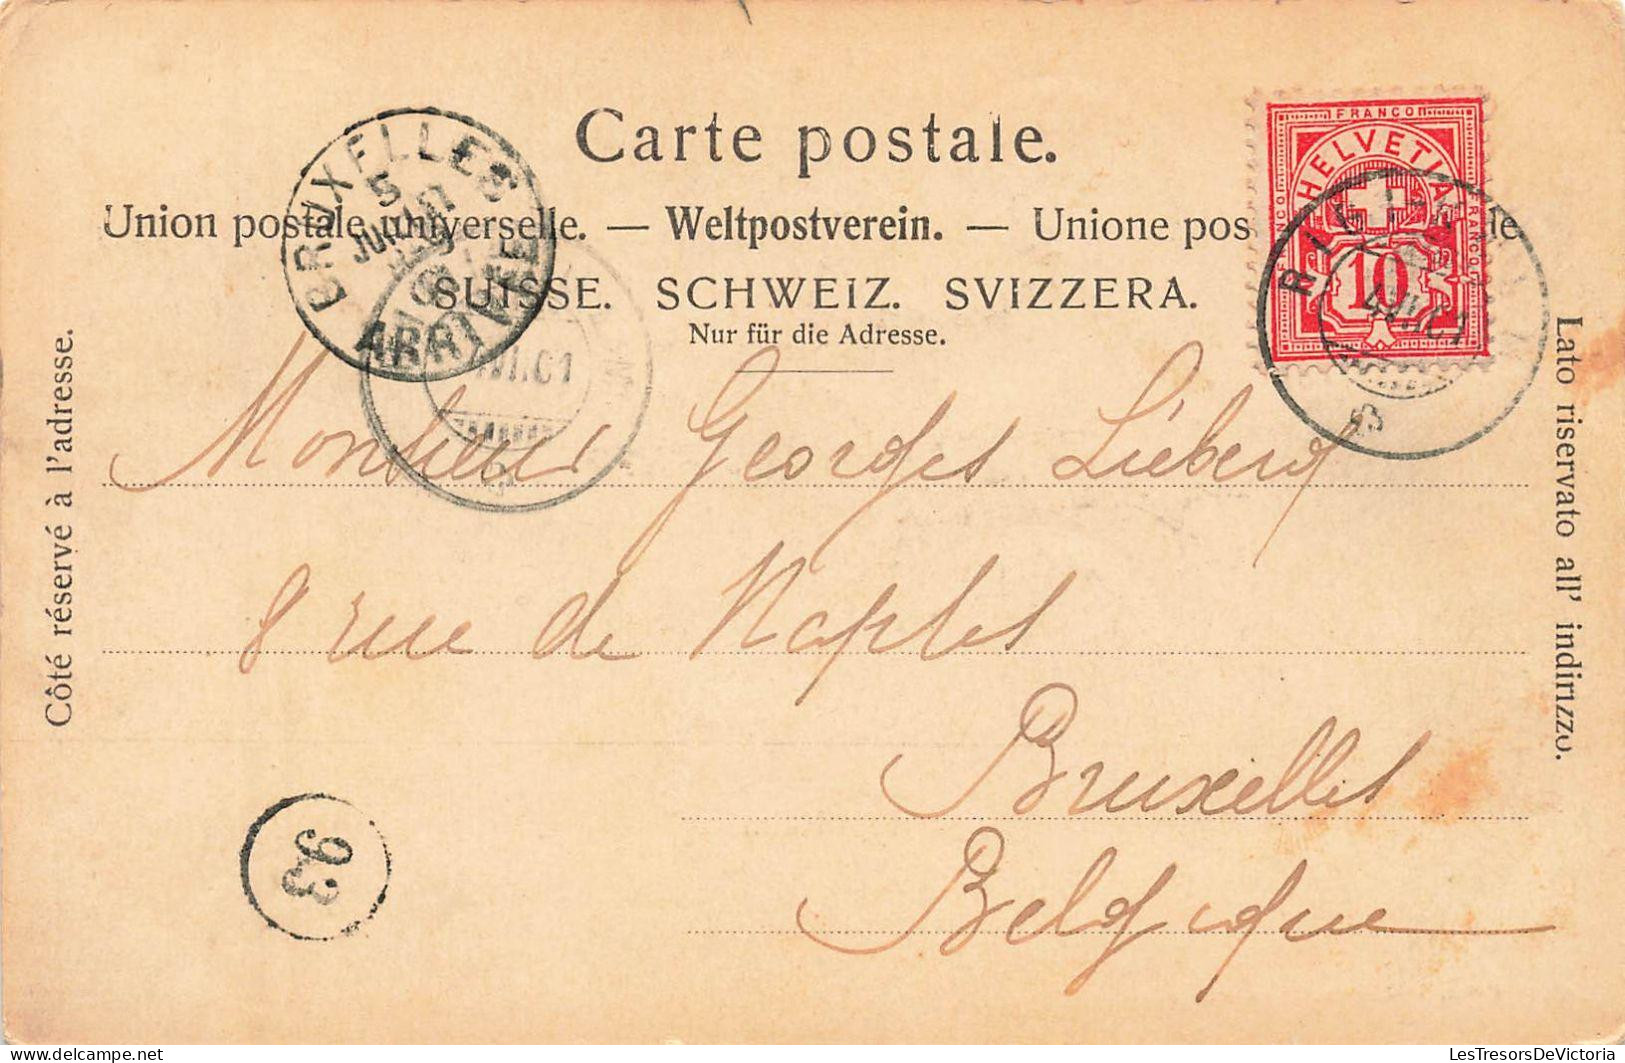 Carte postale.
Union postale universelle. — Weltpostverein. — Unione pos
SUISSE. SCHWEIZ. SVIZZERA.
Nur für die Adresse.
FRANCO
HELVETIA
FRANCO
FRANCO
10
RIGI
BRUXELLES
5
ARRIVEE
VI.01
Côté réservé à l'adresse.
Lato riservato all' indirizzo.
Monsieur Georges Lieberg
8 rue de Naples
Bruxelles
Belgique
93
© LesTresorsDeVictoria.com
LesTresorsDeVictoria